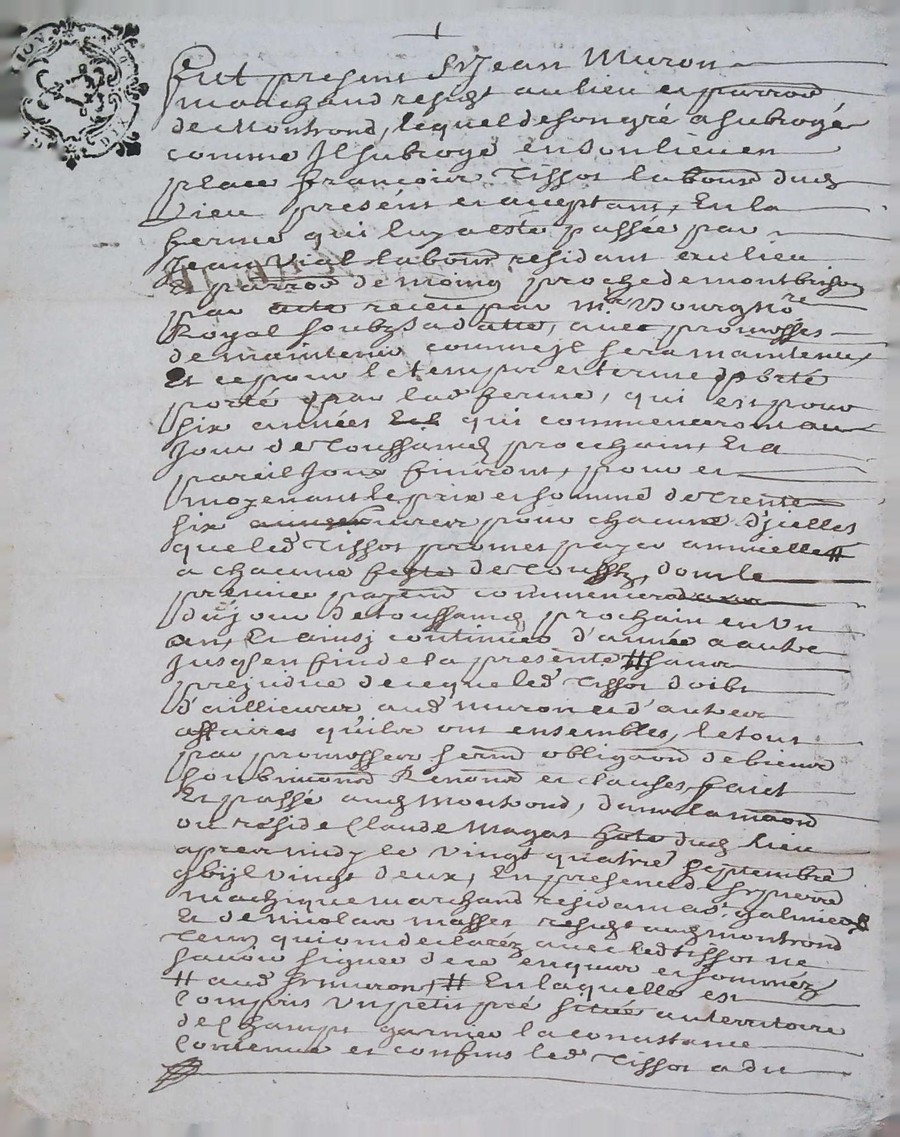 Fut present Sr Jean Muron
marchand residt au lieu et parroe
de Montrond, lequel de son gré a subrogé
comme Il subroge en son lieu et
place francois Tissot labour dud
Lieu present et acceptant, En la
ferme qui luy a esté passée par
Jean Vial labour residant au lieu
Et parroe de moing proche de montbrison
par acte receu par me Bourg
Royal soubz sa datte, avec promesses
de maintenir comme Il sera maintenu,
Et ce pour le temps et terme porté
porté par lad ferme, qui est pour
six années qui commenceront au
Jour de Toussainct prochain, Et a
pareil Jour finiront, pour et
moyenant le prix et somme de Trente
six livres pour chacune d'icelles
que led Tissot promet payer annuellet
a chacune feste de Toussts, dont le
premier payemt commencera
du jour de toussainct prochain en Un
an, Et ainsy continuer d'année a autre
Jusq en fin de la presente # sans
prejudice de ce que led Tissot doibt
d'ailleurs aud muron et d'autres
affaires qu'ils ont ensembles, le tout
par promesses serm obligaon de biens
soubmissions Renons et clauses, faict
Et passé aud Montrond, dans la maison
ou reside Claude Magat hoste dud Lieu
apres midy le vingt quatre Septembre
gbijc vingt deux, En presence de Sr pierre
marchand residant a St galmier
Et de Nicolas masset residt aud montrond
Tem, qui ont declaréz avec led tissot ne
scavoir signer de ce enquis et sommez
# aud Sr muron, # En laquelle est
Compris Un petit pré situé au territoire
de Champt garnier la consistance
Contenue et confins led Tissot a dit